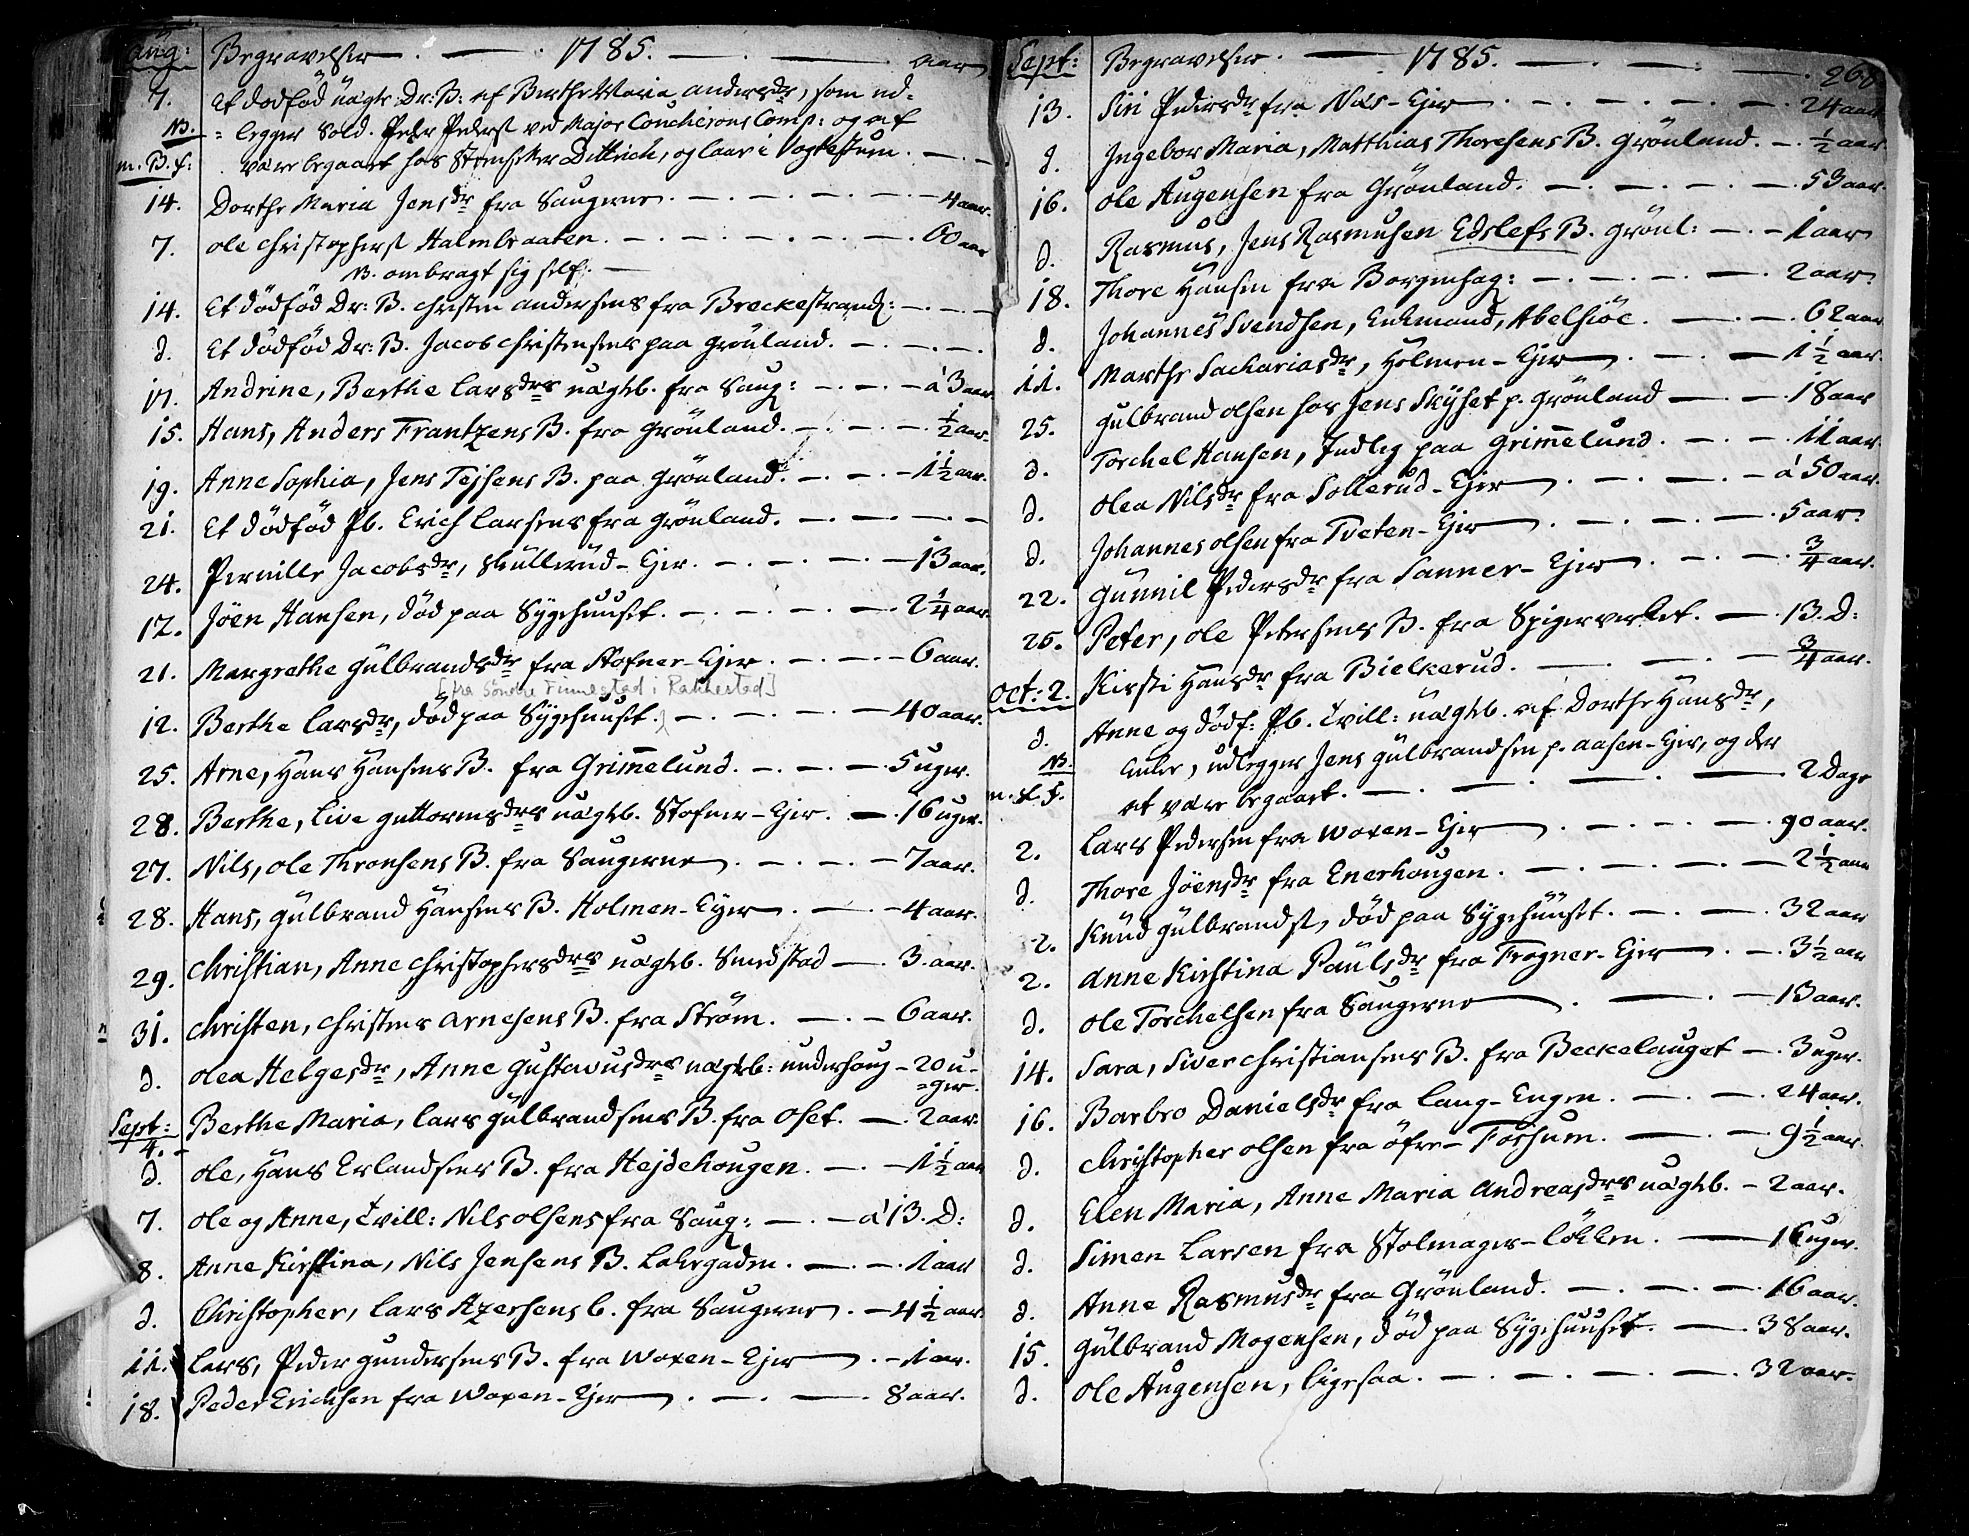 Aug: Begravelser. — . 1785. — . — aar
7. Et dødfød uägte Dr: B: af Berthe Maria Andersdr, som ud-
NB. = legger Sold. Peder Peders ved Major Coucherons Comp: og at
m. B. f: være begaaet hos Steenhukker Dittrich, og laae i Vogtestuen. — . —
14. Dorthe Maria Jensdr fra Saugerne. — . — . — . — . — 4 aar.
7. Ole Christophers Halmbraaten. — . — . — . — . — 60 aar
NB. ombragt sig self. —
14. Et dödföd Dr: B. Christen Andersens fra Breckestrand: — . — . —
d. Et dödföd Dr: B. Jacob Christensens paa Grönland. — . — . —
17. Andrine, Berthe Larsdrs uägtb. fra Saug: — . — . — á 3 aar
15. Hans, Anders Frantzens B. fra Grönland. — . — . — ½ aar.
19. Anne Sophia, Jens Tejsens B. paa Grönland. — . — . — 1½ aar.
21. Et dödföd Pb. Erich Larsens fra Grönland. — . — . — . —
24. Pernille Jacobsdr, Skullerud-Ejer. — . — . — . — 13 aar.
12. Jöen Hansen, död paa Sygehuuset. — . — . — . — 2¼ aar
21. Margrethe Gulbrandsdr fra Stofner-Ejer. — . — . — 6 aar.
[fra Söndre Finnestad i Rakkestad]
12. Berthe Larsdr, död paa Sygehuuset. — . — . — . — 40 aar.
25. Arne, Hans Hansens B. fra Grimelund. — . — . — 5 uger.
28. Berthe, Live Guttormsdrs uägtb. Stofner-Ejer. — 16 uger.
27. Nils, Ole Thronsens B. fra Saugerne. — . — . — 7 aar.
28. Hans, Gulbrand Hansens B. Holmen-Ejer. — . — 4 aar.
29. Christian, Anne Christophersdrs uägtb. Smedstad — . 3. aar.
31. Christen, Christens Arnesens B. fra Ström. — . — 6 aar.
d. Olea Helgesdr, Anne Gustavusdrs uägtb: underhaug — 20 u-
= ger.
Sept: 4. Berthe Maria, Lars Gulbrandsens B. fra Oset. — . 2 aar.
d. Ole, Hans Erlandsens B. fra Hejdehougen. — . — 1½ aar
7. Ole og Anne, Tvill: Nils Olsens fra Saug: — . — á 13. D:
8. Anne Kirstina, Nils Jensens B. Lakegaden. — . — . 1 aar
d. Christopher, Lars Azersens b. fra Saugerne. — 4½ aar.
11. Lars, Peder Gundersens B. fra Woxen-Ejer. — 1 aar.
18. Peder Erichsen fra Woxen-Ejer. — . — . — 8 aar.
Sept: Begravelser. — 1785. — . — . — . 260.
13. Siri Pedersdr fra Näs-Ejer. — . — . — . — 24 aar
d. Ingebor Maria, Matthias Thoresens B. Grönland. — . ½ aar.
16. Ole Augensen fra Grönland. — . — . — . — 53 aar.
d. Rasmus, Jens Rasmusen Edslefs B. Grönl: — . — 1 aar
18. Thore Hansen fra Borgenhag: — . — . — . — 2 aar.
d. Johannes Svendsen, Enkemand, Abelsiöe. — . — . 62 aar
11. Marthe Sachariasdr, Holmen-Ejer. — . — 1½ aar.
25. Gulbrand Olsen hos Jens Skyset p. Grönland — . — . 18 aar
d. Torchel Hansen, Indleg paa Grimelund. — . — . 11 aar.
d. Olea Nilsdr fra Sollerud-Ejer. — . — . — á 50 aar.
d. Johannes Olsen fra Tveten-Ejer. — . — . — . 5 aar.
22. Gunnil Pedersdr fra Sanner-Ejer. — . — . ¾ aar.
25. Peter, Ole Petersens B. fra Spigerverket. — . 13. D:
Oct: 2. Kirsti Hansdr fra Bielkerud. — . — . — ¾ aar.
d. Anne og dödf: Pb. Tvill: uägtb. af Dorthe Hansdr,
NB. Enke, udlegger Jens Gulbrandsen p. Aasen-Ejer, og der
m. L. f. at være begaaet. — . — . — . — 2 Dage
2. Lars Pedersen fra Woxen-Ejer. — . — . — . 90 aar.
d. Thore Jöensdr fra Enerhougen. — . — . — . — 2½ aar
2. Knud Gulbrands, död paa Sygehuuset. — . — . 32 aar
2. Anne Kirstina Paulsdr fra Frogner-Ejer. — . 3½ aar
d. Ole Torchelsen fra Saugerne. — . — 13 aar.
14. Sara, Siver Christiansens B. fra Beckelauget — . 3 uger.
16. Barbro Danielsdr fra Lang-Engen. — . — . 24 aar.
d. Christopher Olsen fra Öfre-Fossum. — . — 9½ aar.
d. Elen Maria, Anne Maria Andreasdrs uägtb. — 2 aar.
d. Simen Larsen fra Stolmager-Lökken. — 16 uger.
d. Anne Rasmusdr fra Grönland. — . — . — . 16 aar.
15. Gulbrand Mogensen, död paa Sygehuuset. — . 38 aar.
d. Ole Augensen, ligesaa. — . — . — . — . 32 aar.